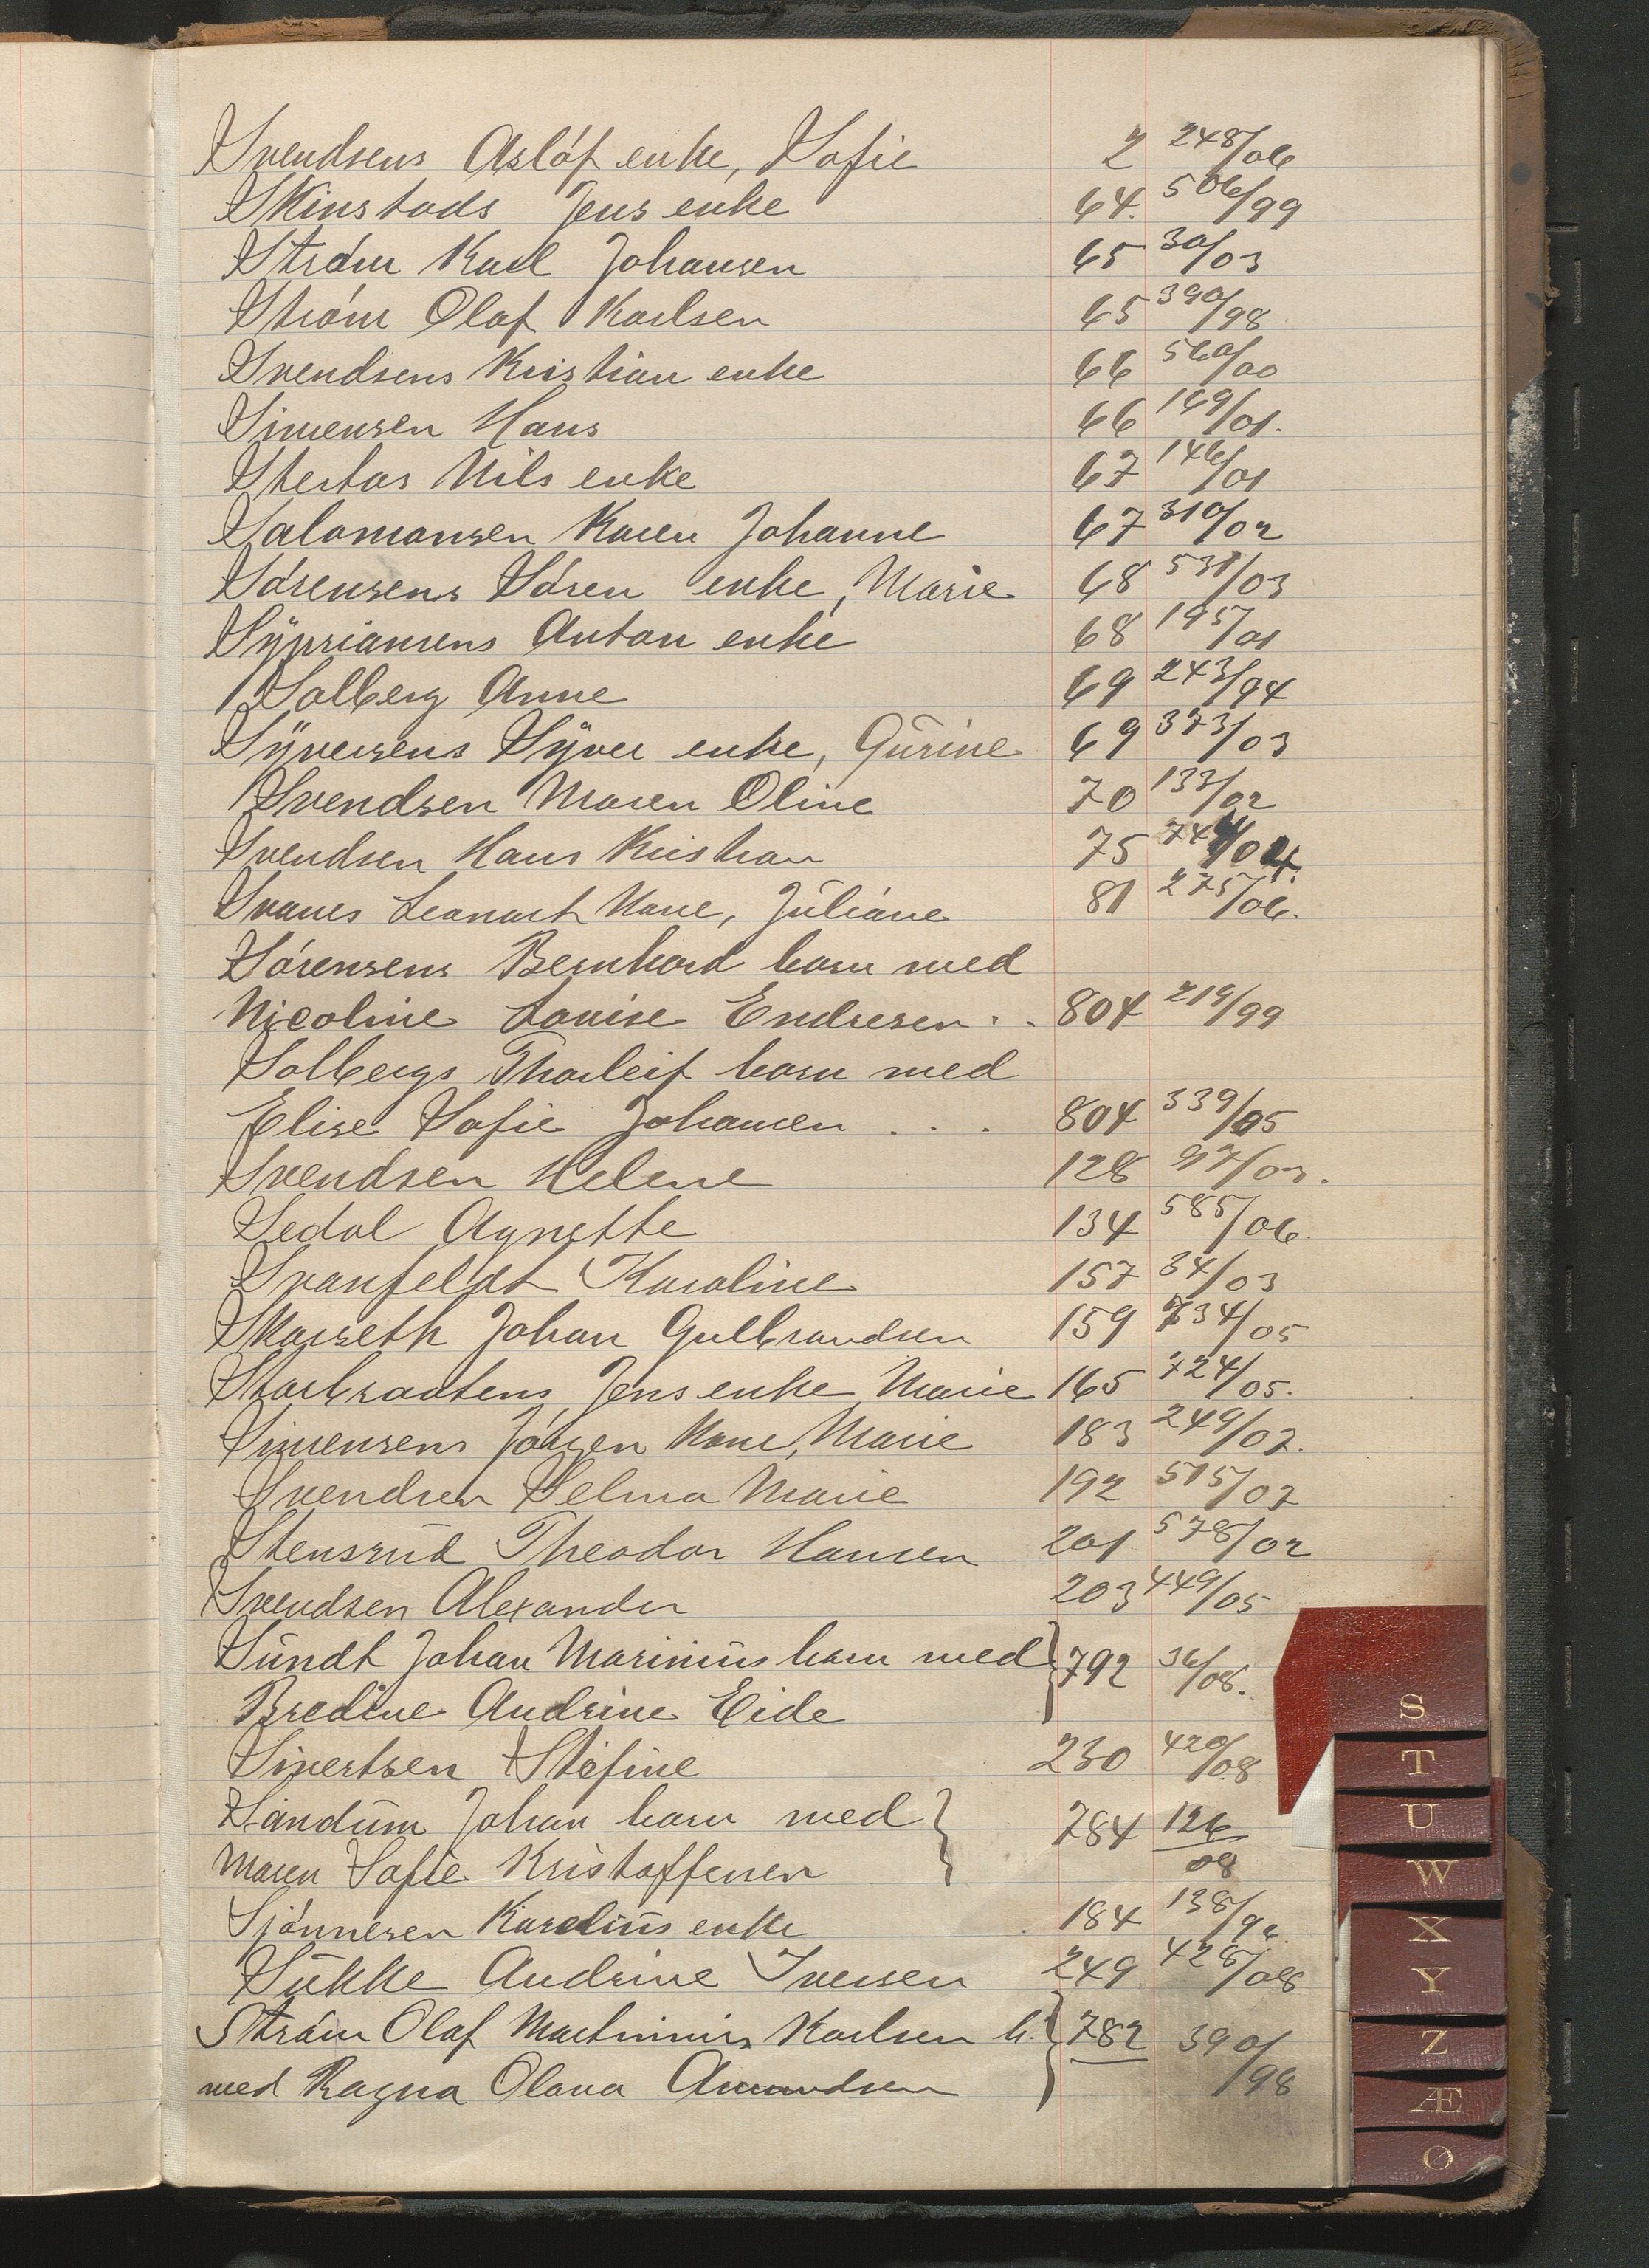 Svendsens Asløf enke, Sofie 2 248/06
Skinstads Jens enke 64. 506/99
Strøm Karl Johansen 65 30/03
Strøm Olaf Karlsen 65 390/98
Svendsens Kristian enke 66 560/00
Simensen Hans 66 169/01.
Nils enke 67 146/01
Salomonsen Karen Johanne 67 310/02
Sørensens Søren enke, Marie 68 531/03
Sypriansens Anton enke 68 195/01
Solberg Anne 69 243/94
Syversens Syver enke, Gurine 69 373/03
Svendsen Maren Oline 70 133/02
Svendsen Hans Kristian 75 744/04.
Svanes Leonart Kone, Juliane 81 275/06.
Sørensens Bernhard barn med
Nicoline Louise Endresen . . 804 219/99
Solbergs Thorleif barn med
Elise Sofie Johansen . . . 804 339/05
Svendsen Helene 128 97/03.
Sedal Agnethe 134 585/06.
Svanfeldt Karoline 157 34/03
Skarseth Johan Gulbrandsen 159 734/05
Starbraatens Jens enke Marie 165 724/05.
Simensens Jørgen Kone, Marie 183 249/07.
Svendsen Selma Marie 192 515/07
Stensrud Theodor Hansen 201 578/02
Svendsen Alexander 203 449/05
Sundt Johan Marinius barn med 792 36/08.
Bredine Andrine Eide
Sivertsen Stefine 230 420/08
Sandum Johan barn med 784 126/08
Maren Sofie Kristoffersen
Sjønnesen Karelius enke 184 138/96
Sukke Andrine Iversen 249 428/08
Strøm Olaf Martinius Karlsen b. 782 390/98
med Ragna Olava Amundsen
S
T
U
W
X
Y
Z
Æ
Ø